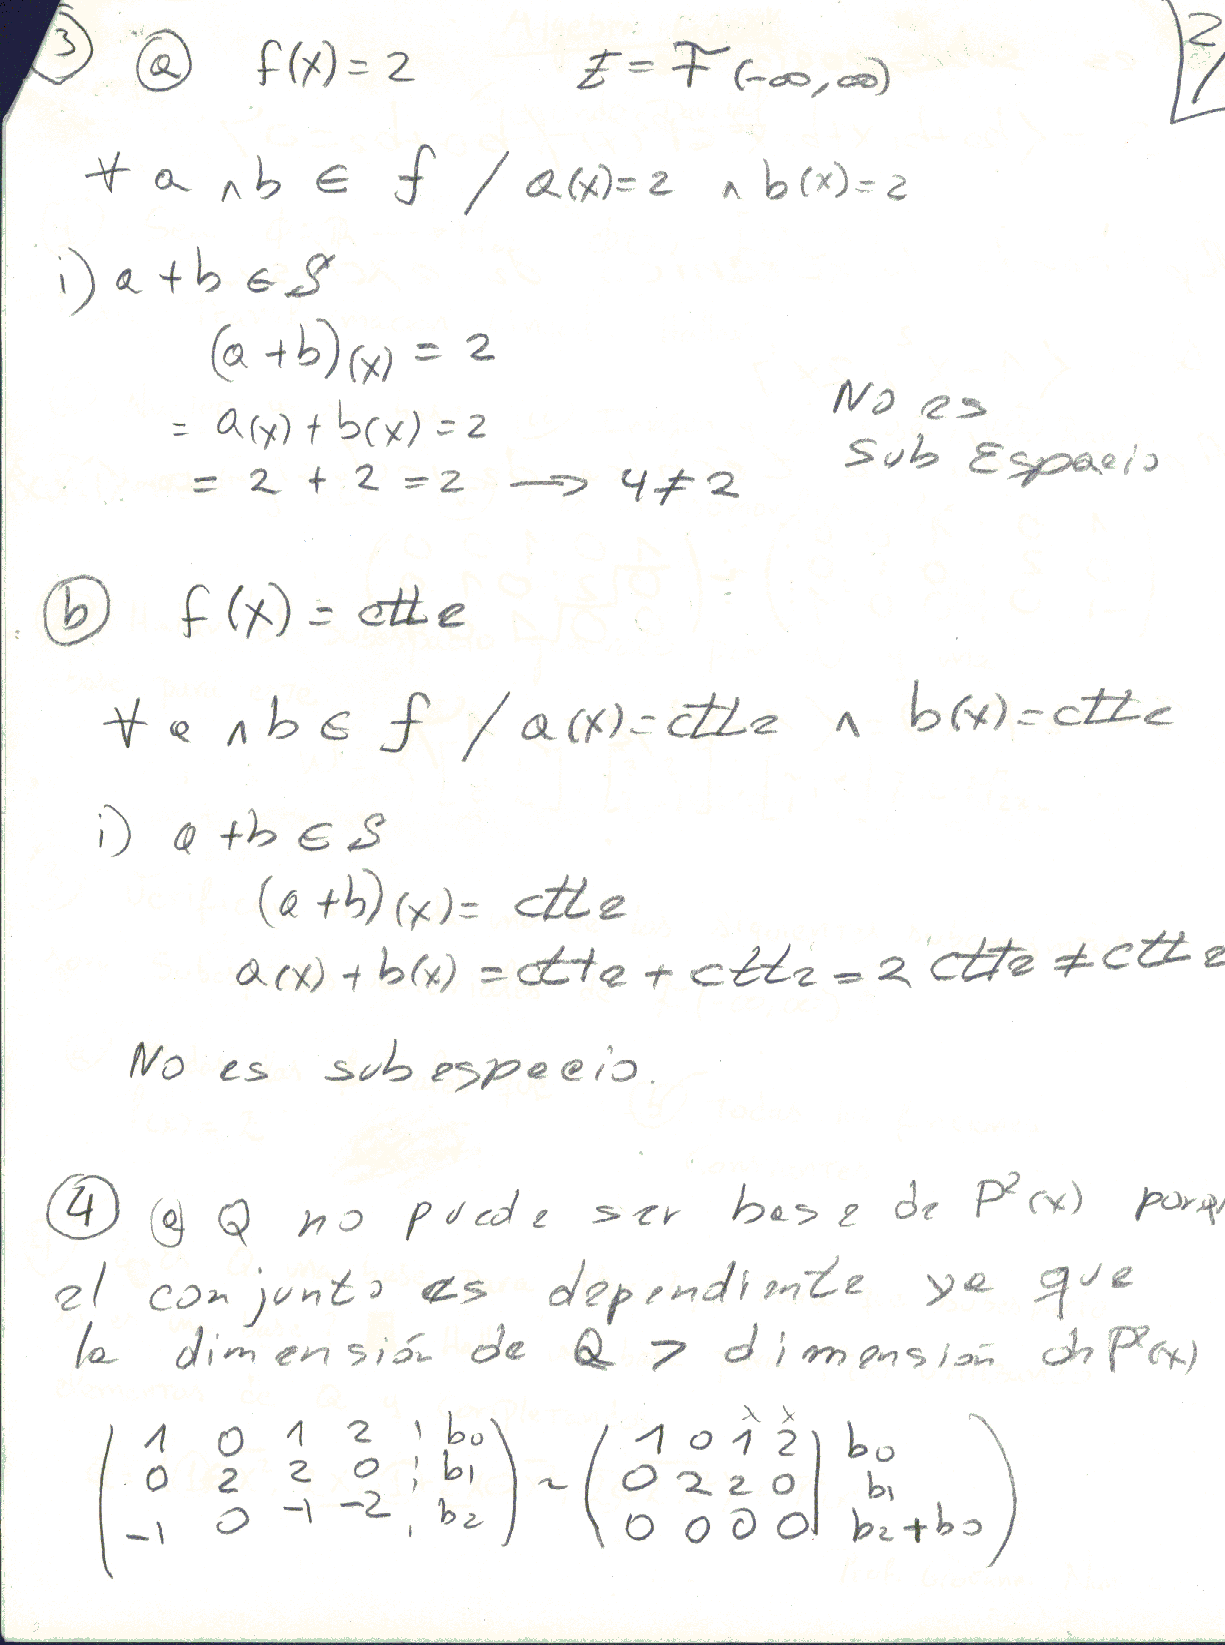 3 a f(x) = 2 E = F(-∞,∞) 2/
∀ a ∧ b ∈ f / a(x)=2 ∧ b(x)=2
i) a + b ∈ S
(a+b)(x) = 2
= a(x) + b(x) = 2
= 2 + 2 = 2 → 4 ≠ 2
No es
Sub Espacio
b f(x) = ctte
∀ a ∧ b ∈ f / a(x)= ctte ∧ b(x)=ctte
i) a + b ∈ S
(a+b)(x)= ctte
a(x) + b(x) = ctte + ctte = 2 ctte ≠ ctte
No es subespacio.
4 a Q no puede ser base de P²(x) porq
el conjunto es dependiente ya que
la dimensión de Q > dimensión de P²(x)
( 1 0 1 2 ¦ b0 ) ~ ( 1 0 1 2 | b0 )
( 0 2 2 0 ¦ b1 ) ( 0 2 2 0 | b1 )
( -1 0 -1 -2 ¦ b2 ) ( 0 0 0 0 | b2+b0 )